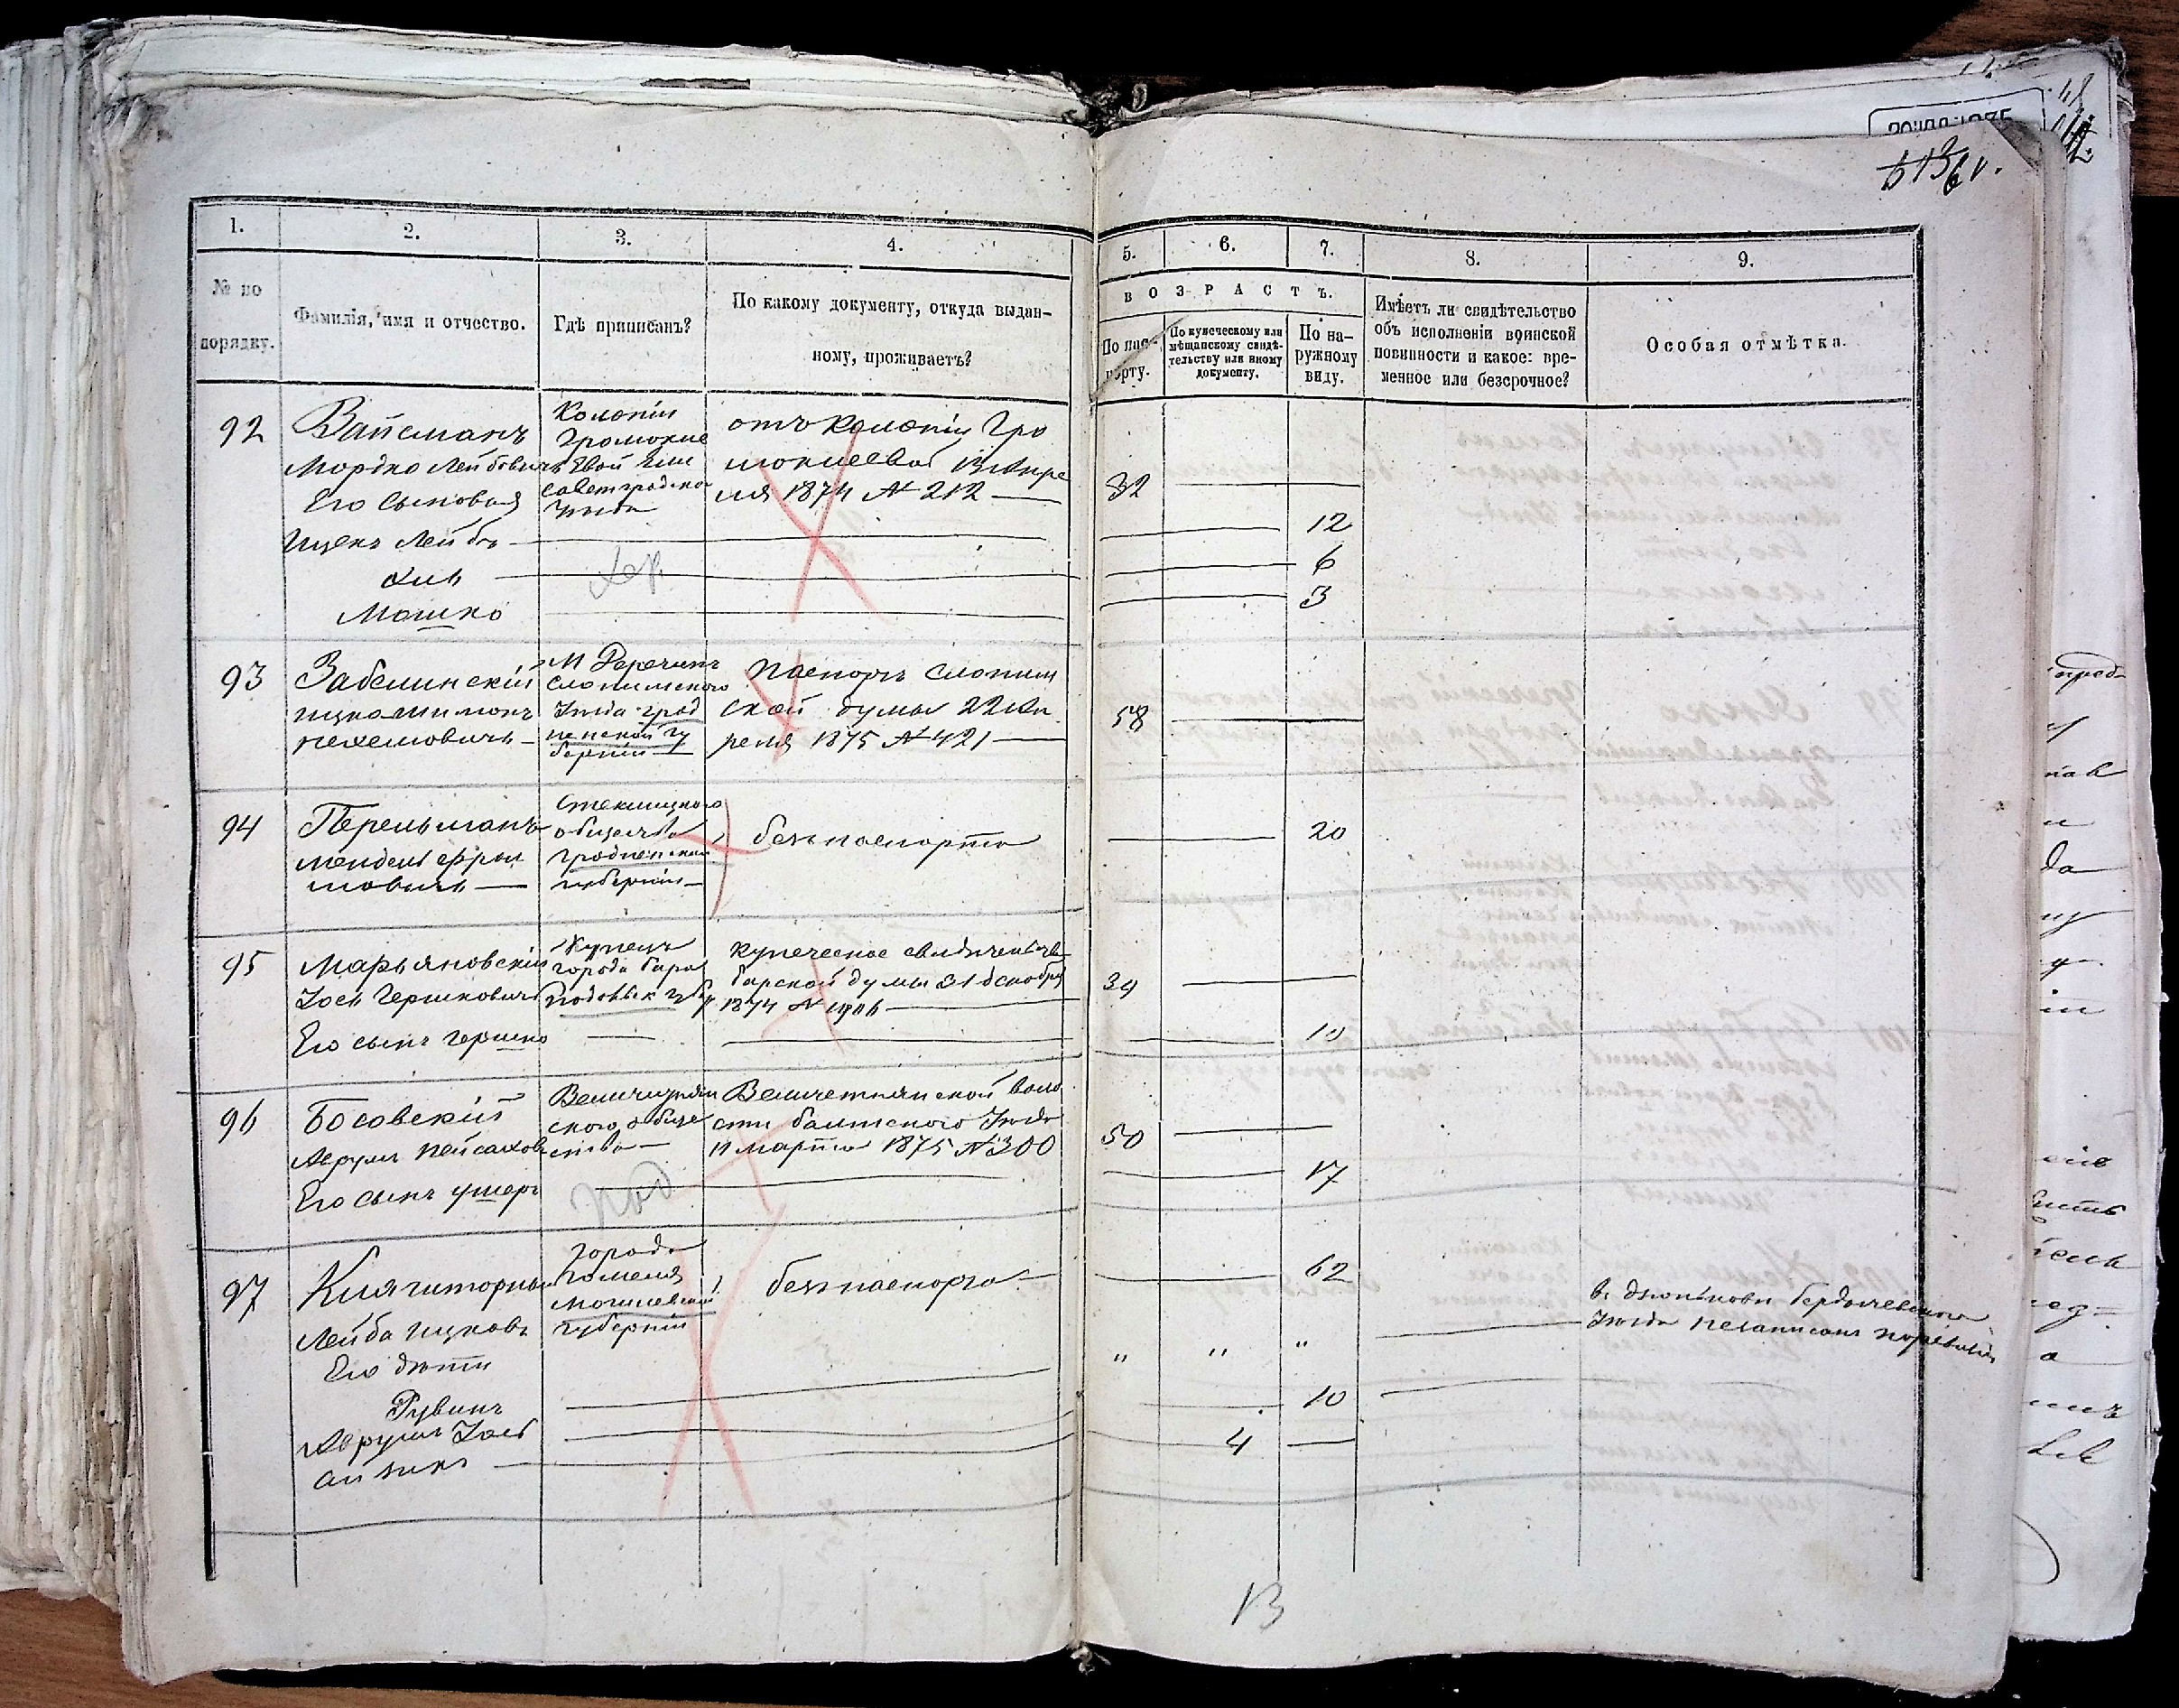 1.
2.
3.
4.
5.
6.
7.
8.
9.
№ по
порядку.
Фамилія, имя и отчество.
Гдѣ приписанъ?
По какому документу, откуда выдан-
ному, проживаетъ?
ВОЗРАСТЪ.
По пас-
порту.
По купеческому или
мѣщанскому свидѣ-
тельству или иному
документу.
По на-
ружному
виду.
Имѣетъ ли свидѣтельство
объ исполненіи воинской
повинности и какое: вре-
менное или безсрочное?
Особая отмѣтка.
92
Вайсманъ
Мордко Лейбовичъ
Его сыновья
Ицекъ Лейбъ
Хиль
Мошко
Колоніи
Громокле
евой Ели
саветградско
уѣзда
Хер.
отъ колоніи Гро
моклеевой 13 апре
ля 1874 № 212
32
12
6
3
93
Забелинскій
Ицко
нехемовичъ
М Деречинъ
слонимского
уѣзда грод
ненской гу
берніи
паспортъ слоним
ской думы 22 ап
реля 1875 № 421
58
94
Перельманъ
мендель ефрои
мовичъ
общества
гродненской
губерніи
безъ паспорта
20
95
Марьяновскій
Іось Гершковичъ
Его сынъ Гершко
Купецъ
города Бара
Подольск губер
купеческое свидѣтельств
барской думы 31 декабря
1874 №
39
10
96
Босовскій
Аврумъ Пейсахов
Его сынъ ушеръ
ского обще
ства
Под
Балтского Уѣзда
11 марта 1875 № 300
50
17
97
Лейба ицковъ
Его дѣти
Рувинъ
Аврумъ Іось
Айзикъ
города
Гомеля
могилевской
губерніи
безъ паспорта
62
"
"
"
10
4
бердичевского
Уѣзда незаписанъ
13